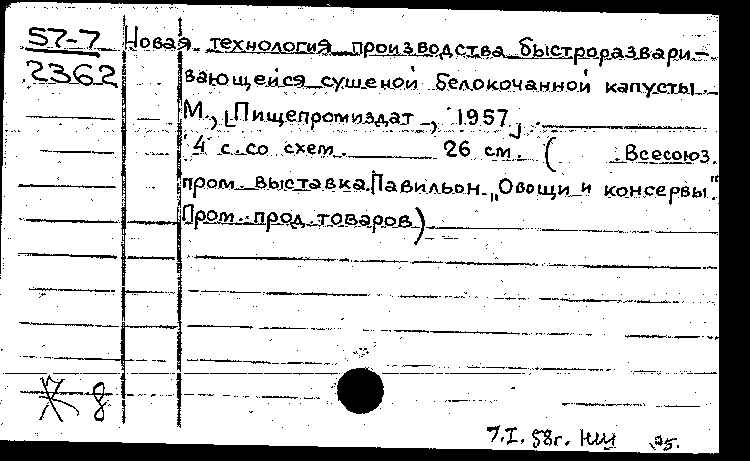 57-7
2362
Новая технология производства быстроразвари-
вающейся сушеной белокочанной капусты.
М., [Пищепромиздат], 1957.
4 с. со схем. 26 см. ( Всесоюз.
пром. выставка. Павильон „Овощи и консервы".
Пром. прод. товаров)
Ж 8
7.I.58г. НШ